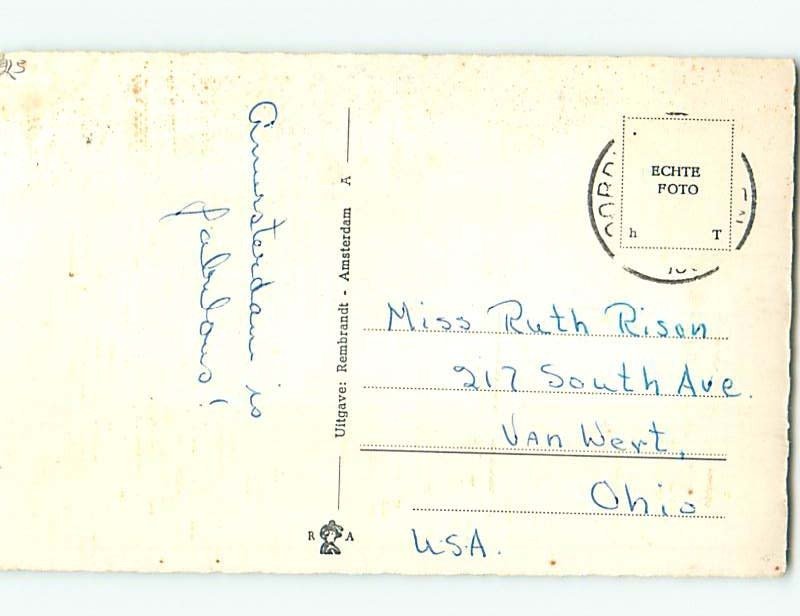 Amersterdam is
fabulous!
Uitgave: Rembrandt - Amsterdam A
R A
ECHTE
FOTO
h T
Miss Ruth Rison
217 South Ave.
Van Wert,
Ohio
U.S.A.